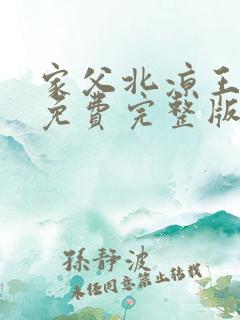 家父北凉王
免費完整版
孫静波
未经同意禁止转载